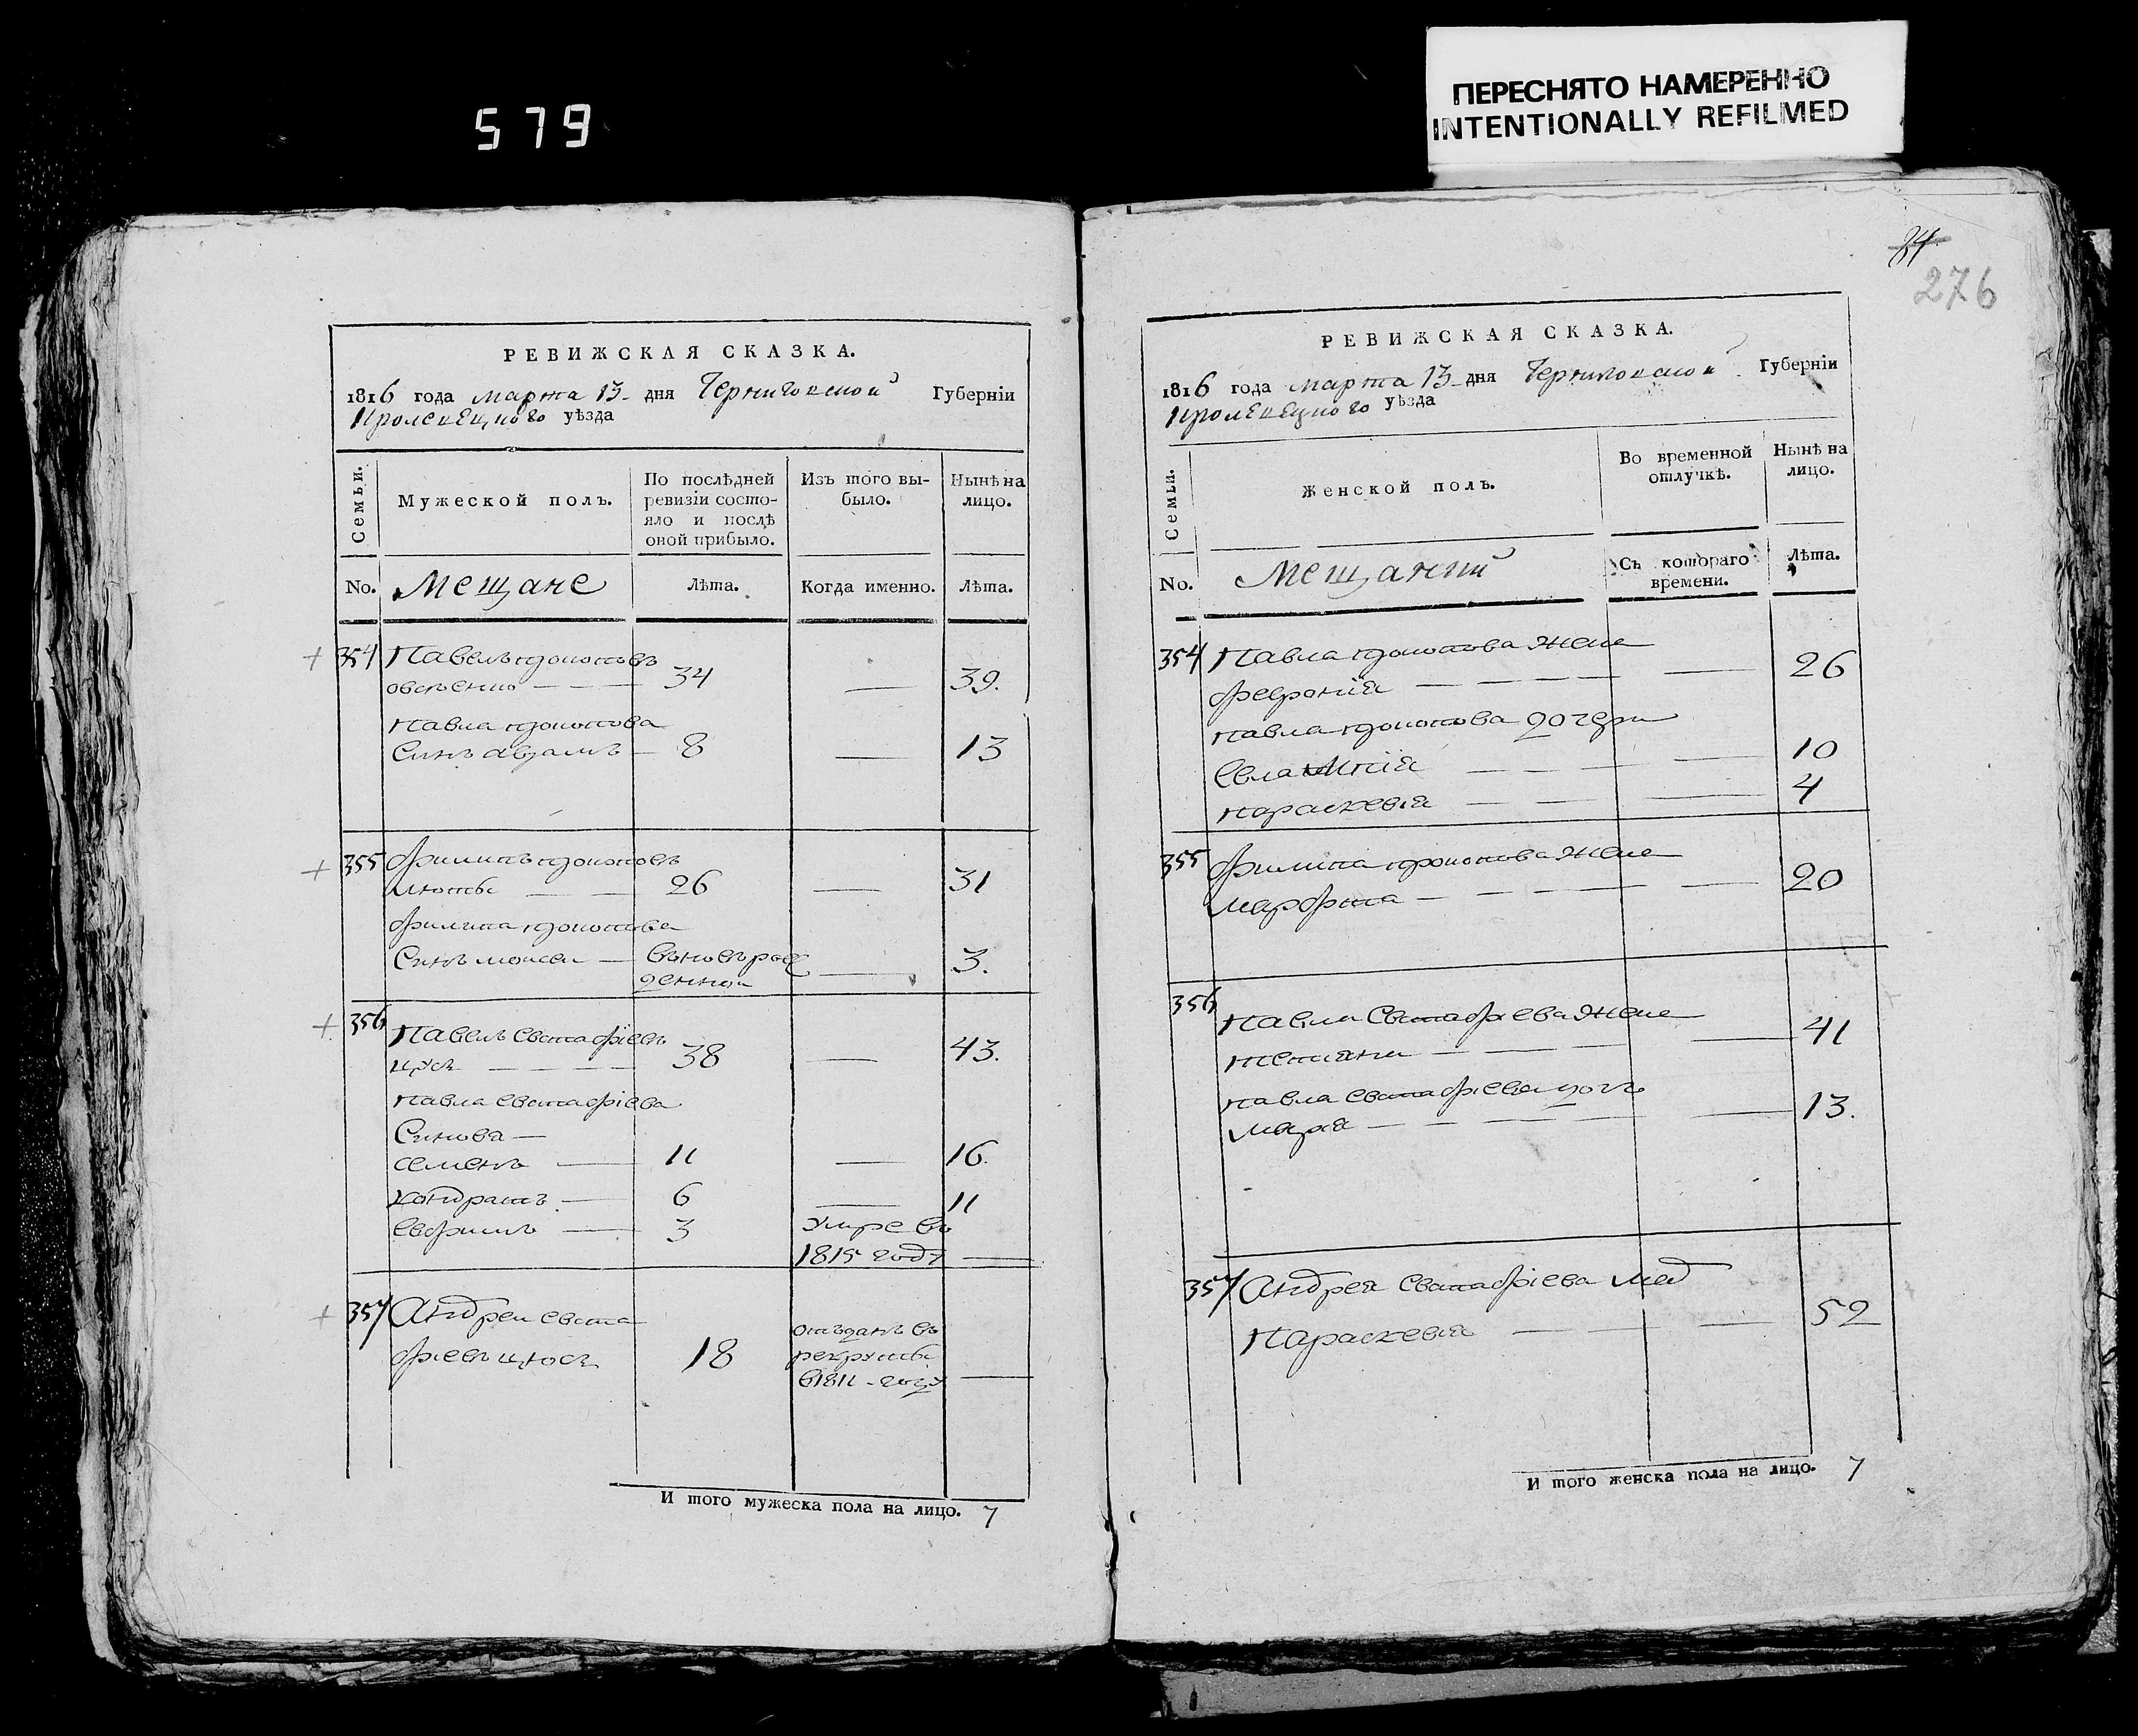 579
ПЕРЕСНЯТО НАМЕРЕННО
INTENTIONALLY REFILMED
276
РЕВИЖСКАЯ СКАЗКА.
1816 года марта 13 дня Черниговской Губерніи
Кролевецкого уѣзда
Семьи.
Мужеской полъ.
По послѣдней
ревизіи состо-
яло и послѣ
оной прибыло.
Изъ того вы-
было.
Нынѣ на
лицо.
No. Мещане Лѣта. Когда именно. Лѣта.
354 Павелъ
34 — 39.
Павла
Синъ — 8 — 13
355 Филипъ
26 — 31
Филипа
Синъ моисеи — вьновърож
денной — 3.
356 Павелъ Евстафіевъ
38 — 43.
Павла Евстафіева
Синова —
семенъ — 11 — 16.
кондратъ — 6 — 11
Евфимъ — 3 Умре въ
1815 году —
357 Андреи Евста
фіевъ 18 отъданъ въ
рекруты
в1811 - году —
И того мужеска пола на лицо. 7
РЕВИЖСКАЯ СКАЗКА.
1816 года марта 13 дня Черниговской Губерніи
Кролевецкого уѣзда
Семьи.
Женской полъ.
Во временной
отлучкѣ.
Нынѣ на
лицо.
No. Мещанки Съ котораго
времени.
Лѣта.
354 Павла жена
феврония — 26
Павла дочери
10
параскевия — 4
355 Филипа жена
марфа — 20
356 Павла Евстафіева жена
41
павла Евстафіева дочь
мария — 13.
357 Андрея Евстафіева мат
Параскевия — 52
И того женска пола на лицо. 7